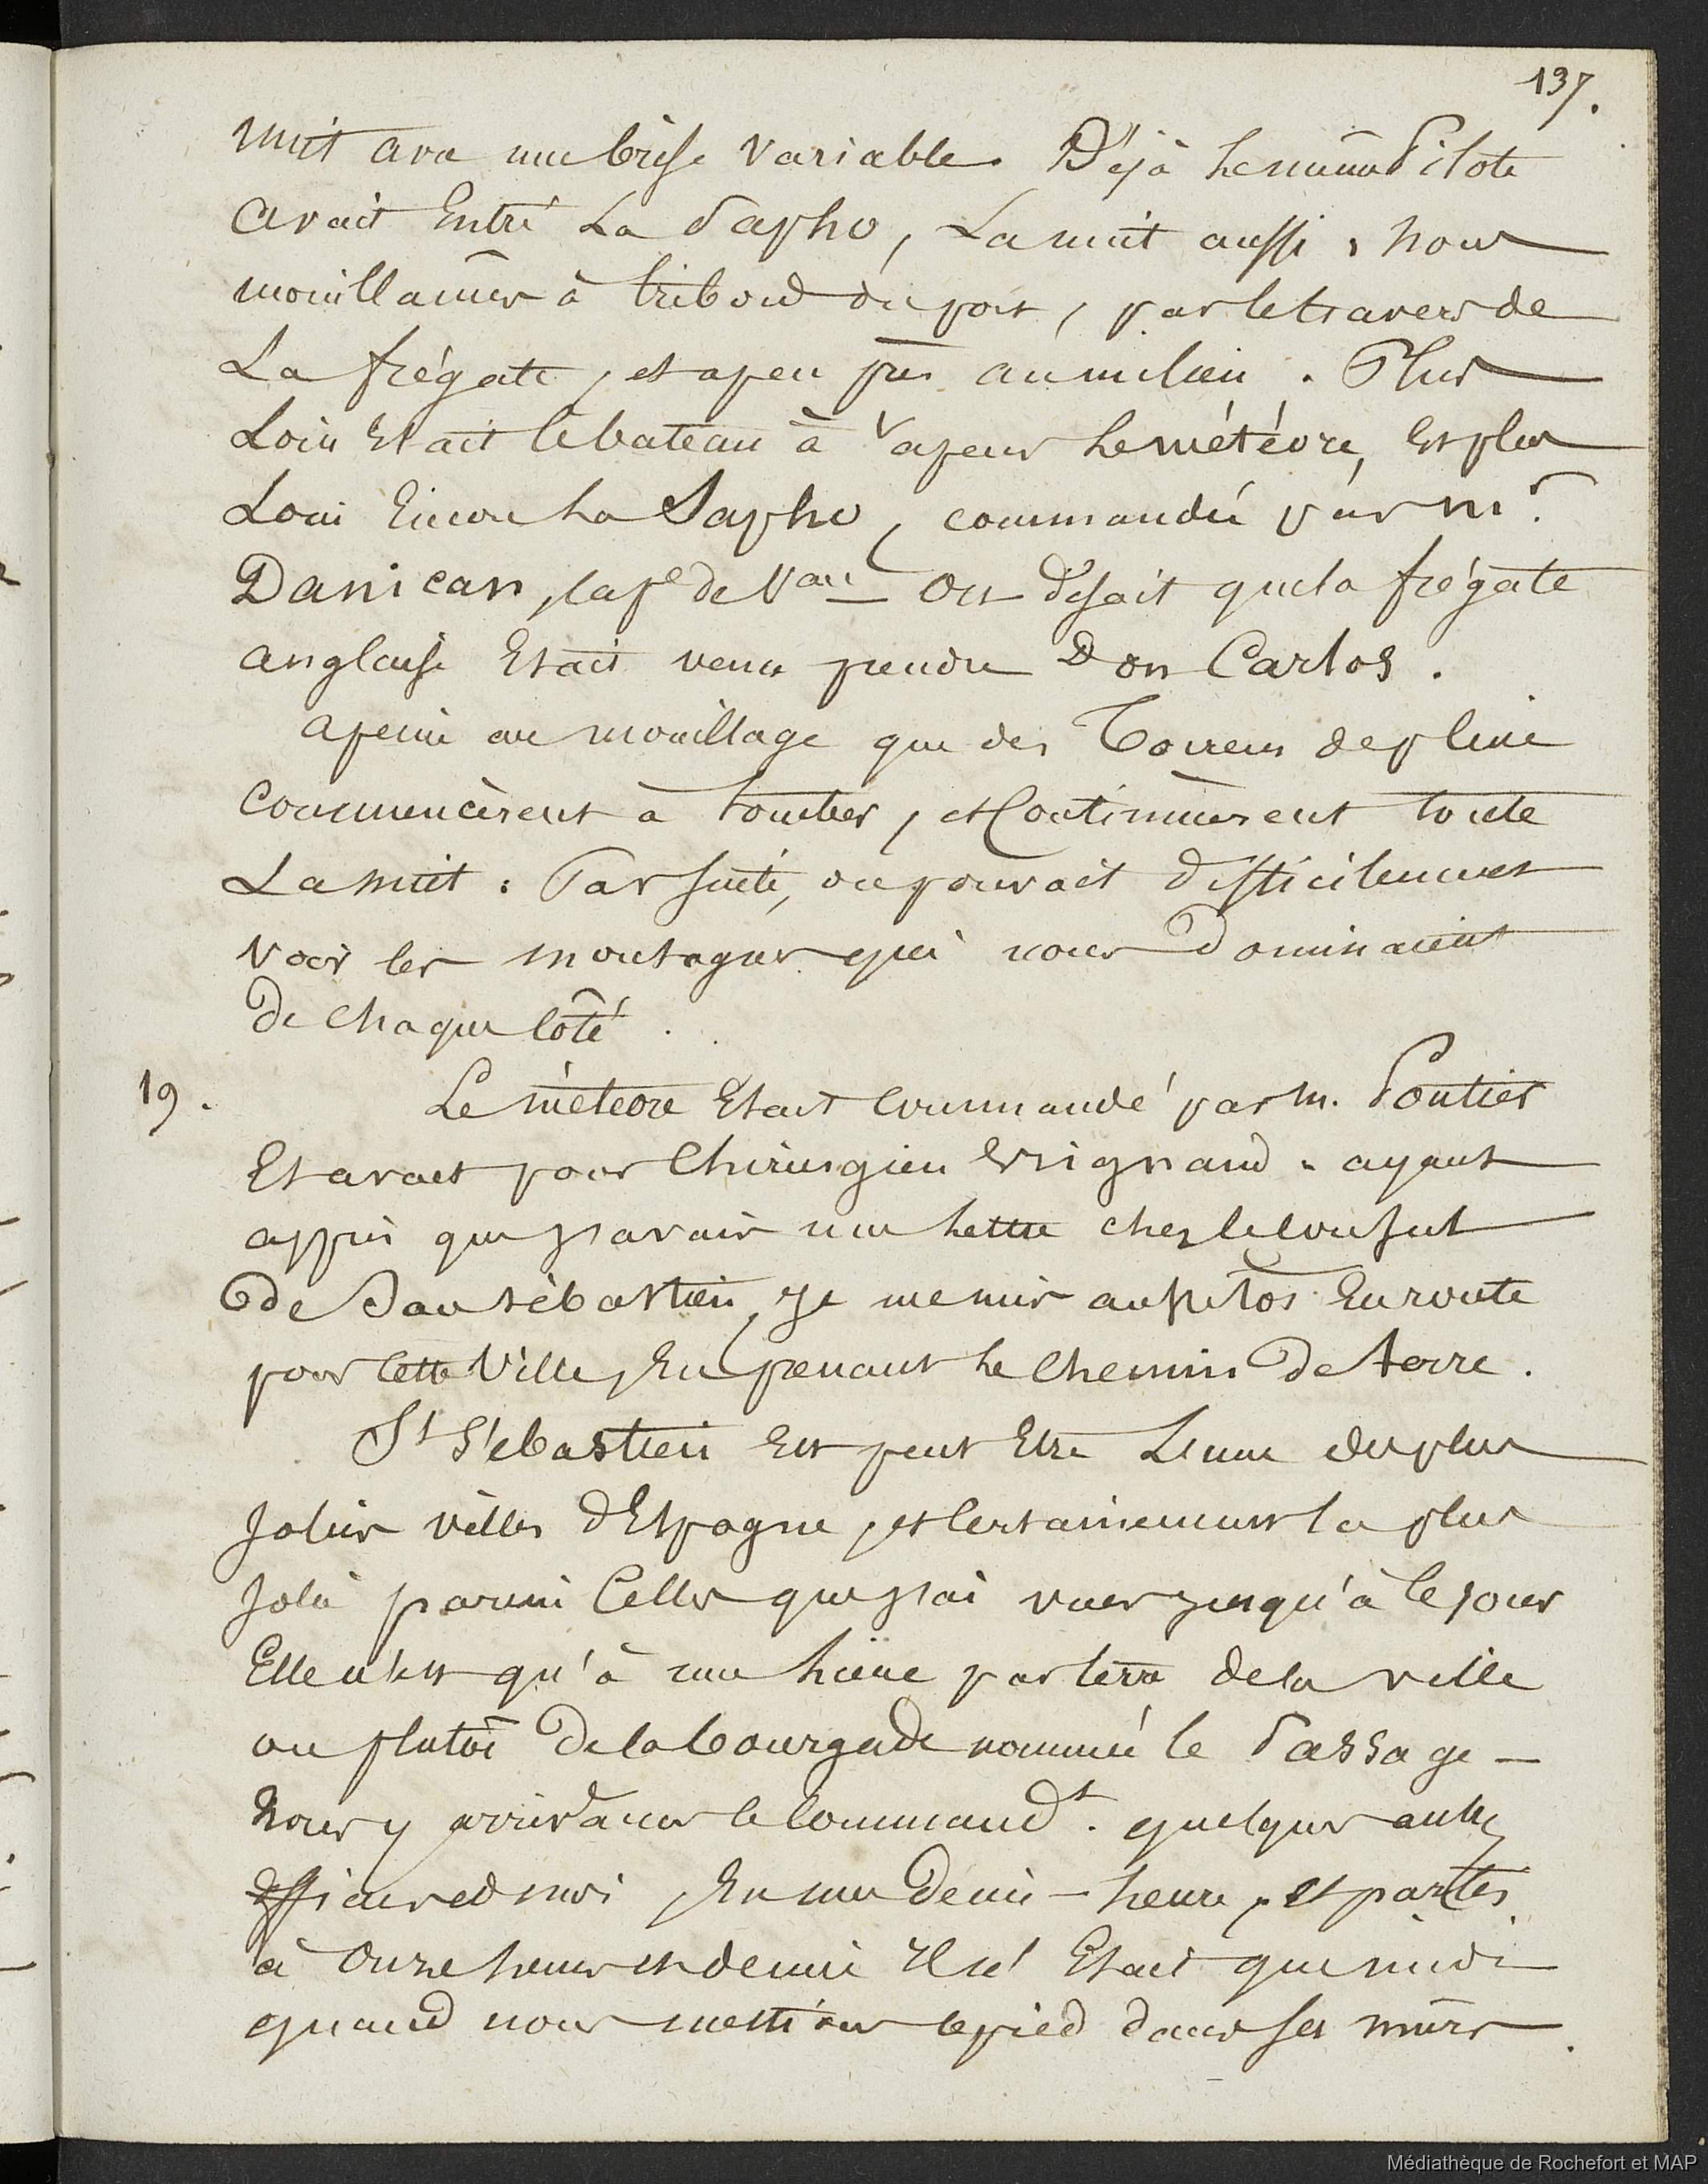 137.
nuit avec une brise variable. Déjà le même Pilote
avait Entré La Sapho, La nuit aussi, nous
mouillâmes à tribord du port, par le travers de
La frégate, et apeu près au milieu. Plus
Loin Etait le bateau à Vapeur Le météore, et plus
Loin Encore La Sapho, commandée par mr.
Danican, Cape de Vau – On disait que la frégate
anglaise Etait venue prendre Don Carlos.
apeine au mouillage que des Torrens de pluie
Commencèrent à tomber, et Continuèrent toute
La nuit : Par suite, on pouvait difficilement
Voir les montagnes qui nous Dominaient
De chaque Côté.
19. Le météore Etait Commandé par m. Poutier
Et avait pour Chirurgien Erignaud. ayant
appris que j'avais une Lettre chez le Consul
de San sébastien, Je me mis aussitôt En route
pour Cette Ville, En prenant Le Chemin De terre.
St Sébastien Est peut Etre L'une des plus
Jolies villes d'Espagne, et Certainement la plus
Jolie parmi Celles que j'ai vues jusqu'à Ce jour
Elle n'est qu'à une Lieue par terre de la ville
ou plutôt De la bourgade nommée le Passage –
Nous y arrivâmes le Command.t quelques autres
officiers et moi, En une Demie-heure, et partis
à Onze heures et demie Il n'Etait que midi
quand nous mettions le pied dans ses murs.
Médiathèque de Rochefort et MAP